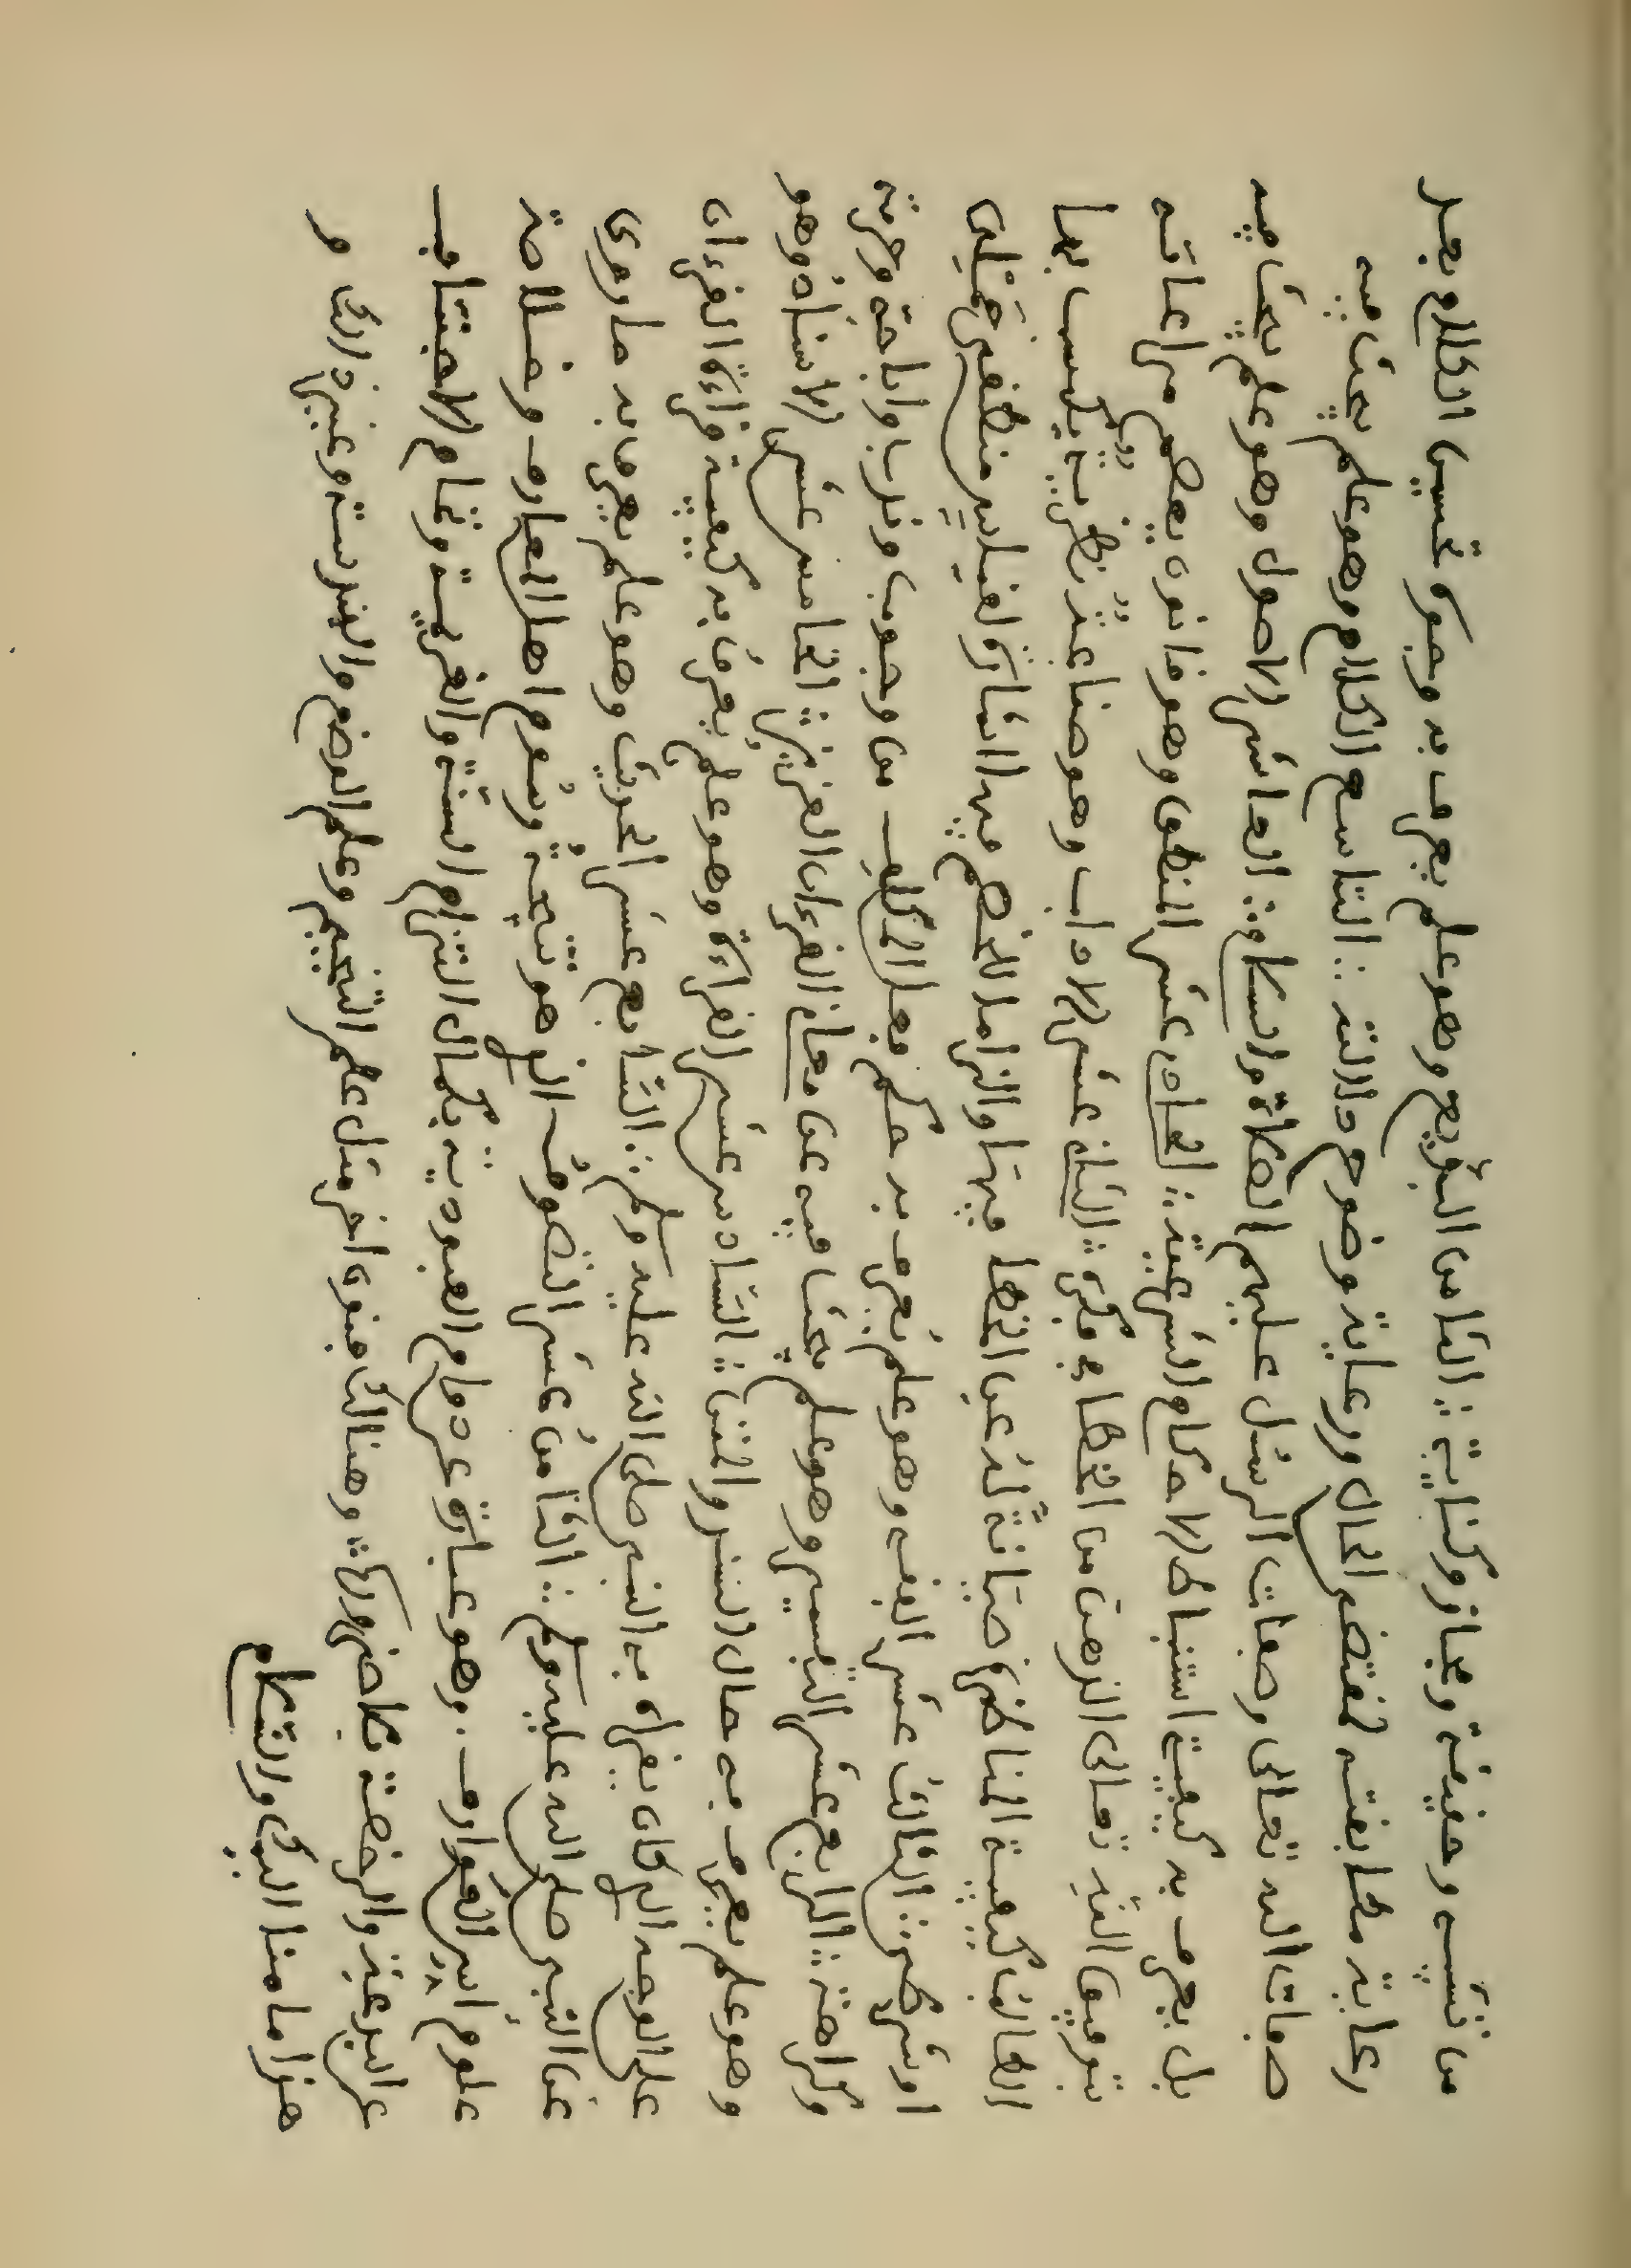 من تشبيه وحقيقة ومجاز وكناية :. الثامن البديع وهو علم يعرف به وجوه تحسين الكلام بعد
رعاية مطابقته لمقتضى الحال ورعاية وضوح دلالته :. التاسع الكلام وهو علم يبحث فيه
صفات الله تعالى وصفات الرسل عليهم الصلاة والسلام :. العاشر الاصول وهو علم يبحث فيه
بل يعرف به كيفية استنباط الاحكام الشرعية :. الحادي عشر المنطق وهو قانون يعصم مراعاته
بتوفيق الله تعالى الذهن من الخطا في فكره :. الثاني عشر الاداب وهو صناعة نظرية يكتسب بها
الطالب كيفية المناظرة صيانة له عن الخطا فيها والزاما للخصم فيها اشارة
او شركي :. الثالث عشر الفقه وهو علم يعرف به حكم فعل المكلف من وجوب وندب واباحة وحرمة
وكراهة :. الرابع عشر التفسير وهو علم يبحث فيه عن معاني القرءان العزيز :. الخامس عشر الاسناد وهو
وهو علم يعرف به حال السند والمتن :. السادس عشر القراءة وهو علم يعرف به كيفية قراءة القرءان
على الوجه الذي كان يقراه به النبي صلى الله عليه وسلم :. السابع عشر الحديث وهو علم يعرف به ما روى
عن النبي صلى الله عليه وسلم :. الثامن عشر التصوف الذي هو نتيجة رسوم اهل المعارف وخلاصة
علوم العوارف . وهو عبارة عن دوام العبودية بكمال التزام السنة والعزيمة وتمام الاجتناب
عن البدعة والرخصة بلا ضرورة :. وهنالك فنون اخر مثل علم التنجيم وعلم الوضع والهندسة وغير ذالك و
هذا ما منا اليك والسلام